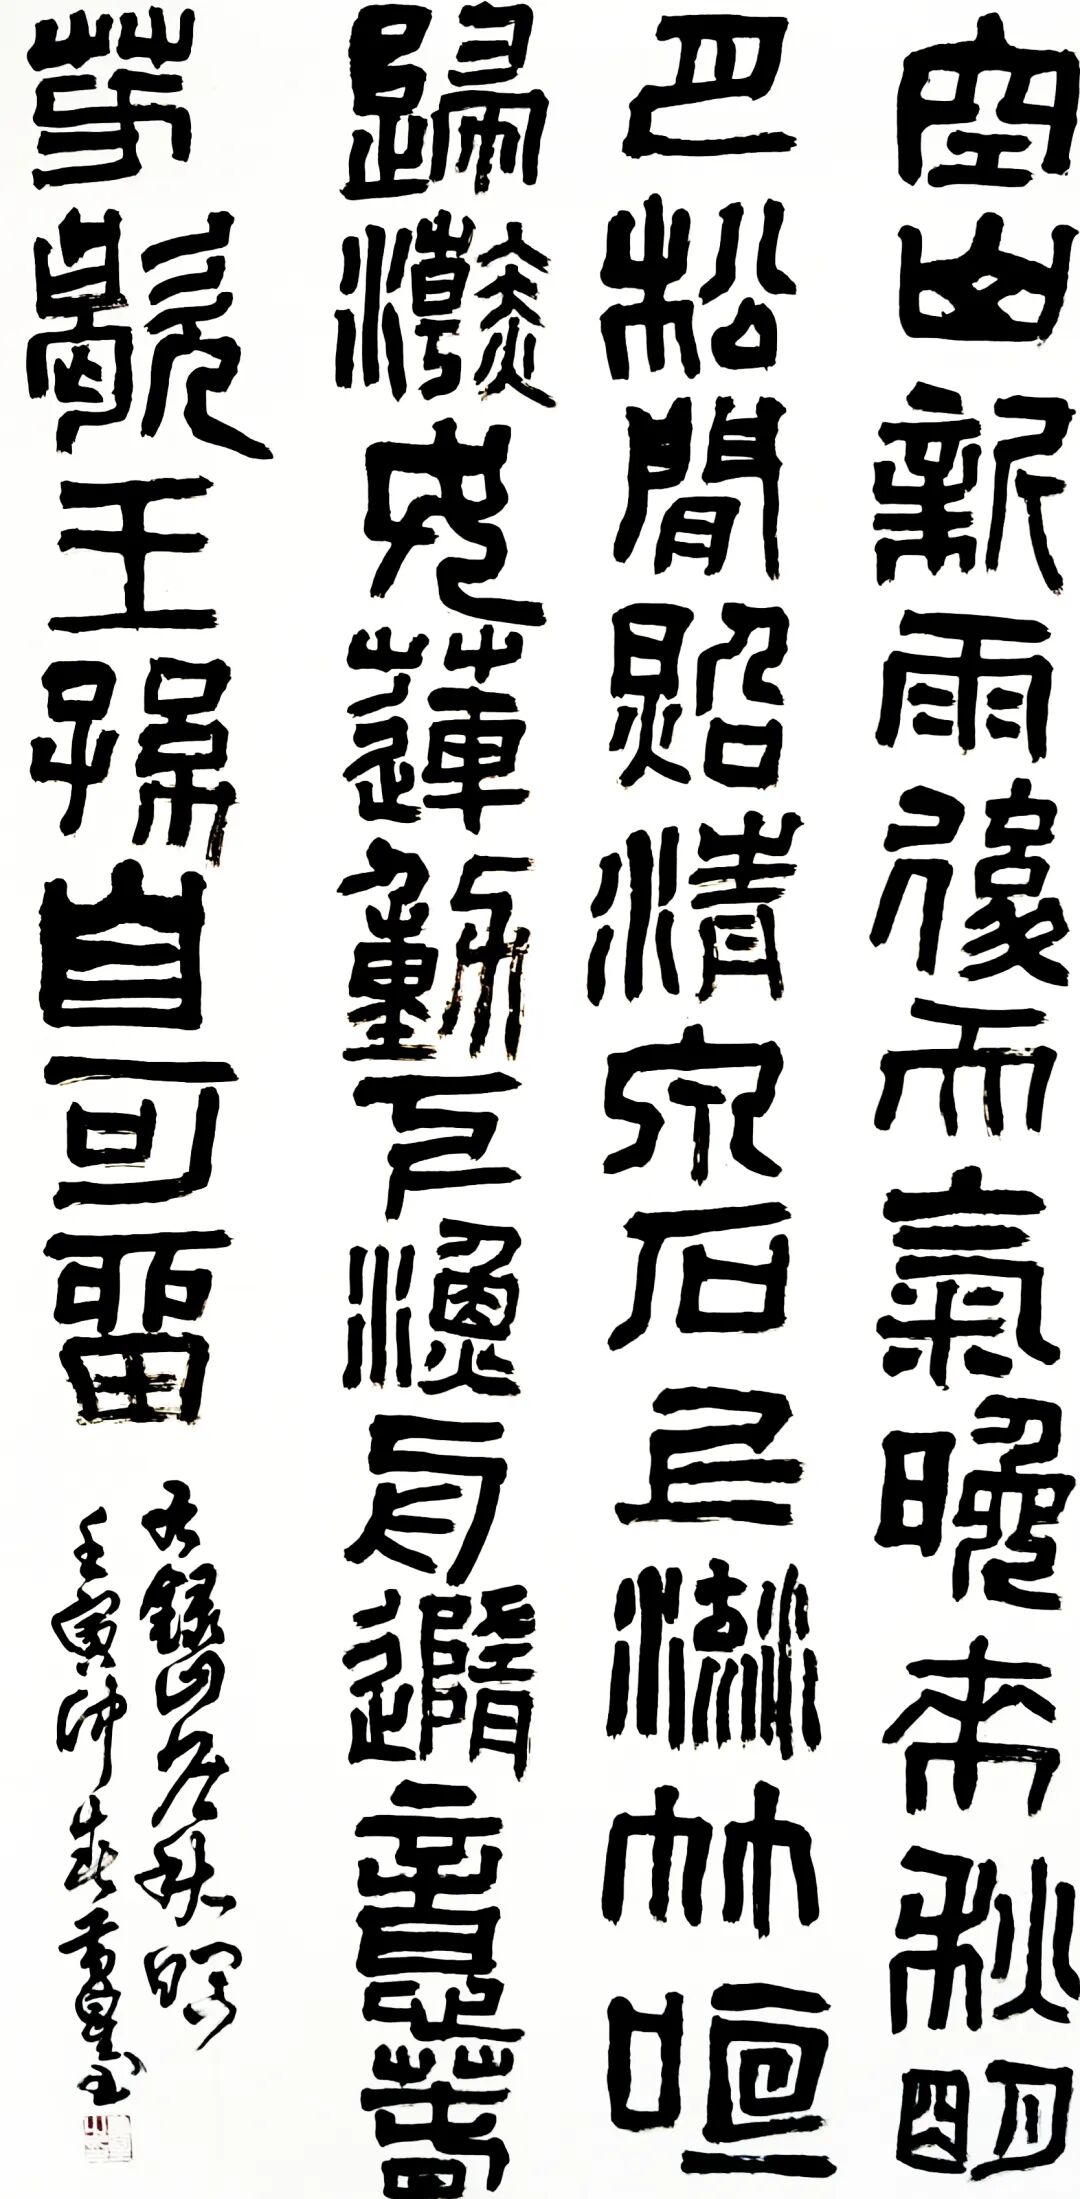 空山新雨後天氣晚來秋明
月松閒照清泉石上流竹喧
歸澣女蓮動下漁舟隨意春
芳歇王孫自可留
右錄山居秋暝
壬寅仲春黃